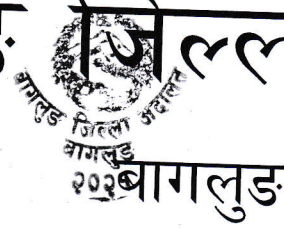 ङ जिल्ल
बागलुङ जिल्ला अदालत
बागलुङ
बागलुङ